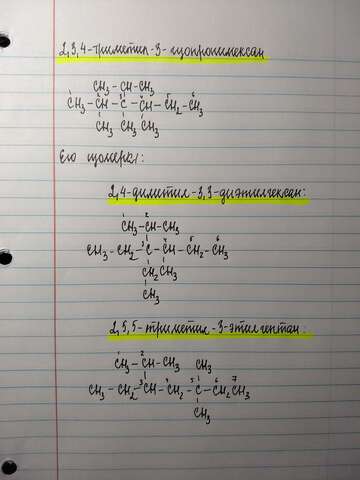 2,3,4-триметил-3-изопропилгексан
CH₃-CH-CH₃
¹CH₃-²CH-³C-⁴CH-⁵CH₂-⁶CH₃
CH₃ CH₃ CH₃
Его изомеры:
2,4-диметил-3,3-диэтилгексан:
¹CH₃-²CH-CH₃
CH₃-CH₂-³C-⁴CH-⁵CH₂-⁶CH₃
CH₂ CH₃
CH₃
2,5,5-триметил-3-этилгептан:
¹CH₃-²CH-CH₃ CH₃
CH₃-CH₂-³CH-⁴CH₂-⁵C-⁶CH₂⁷CH₃
CH₃